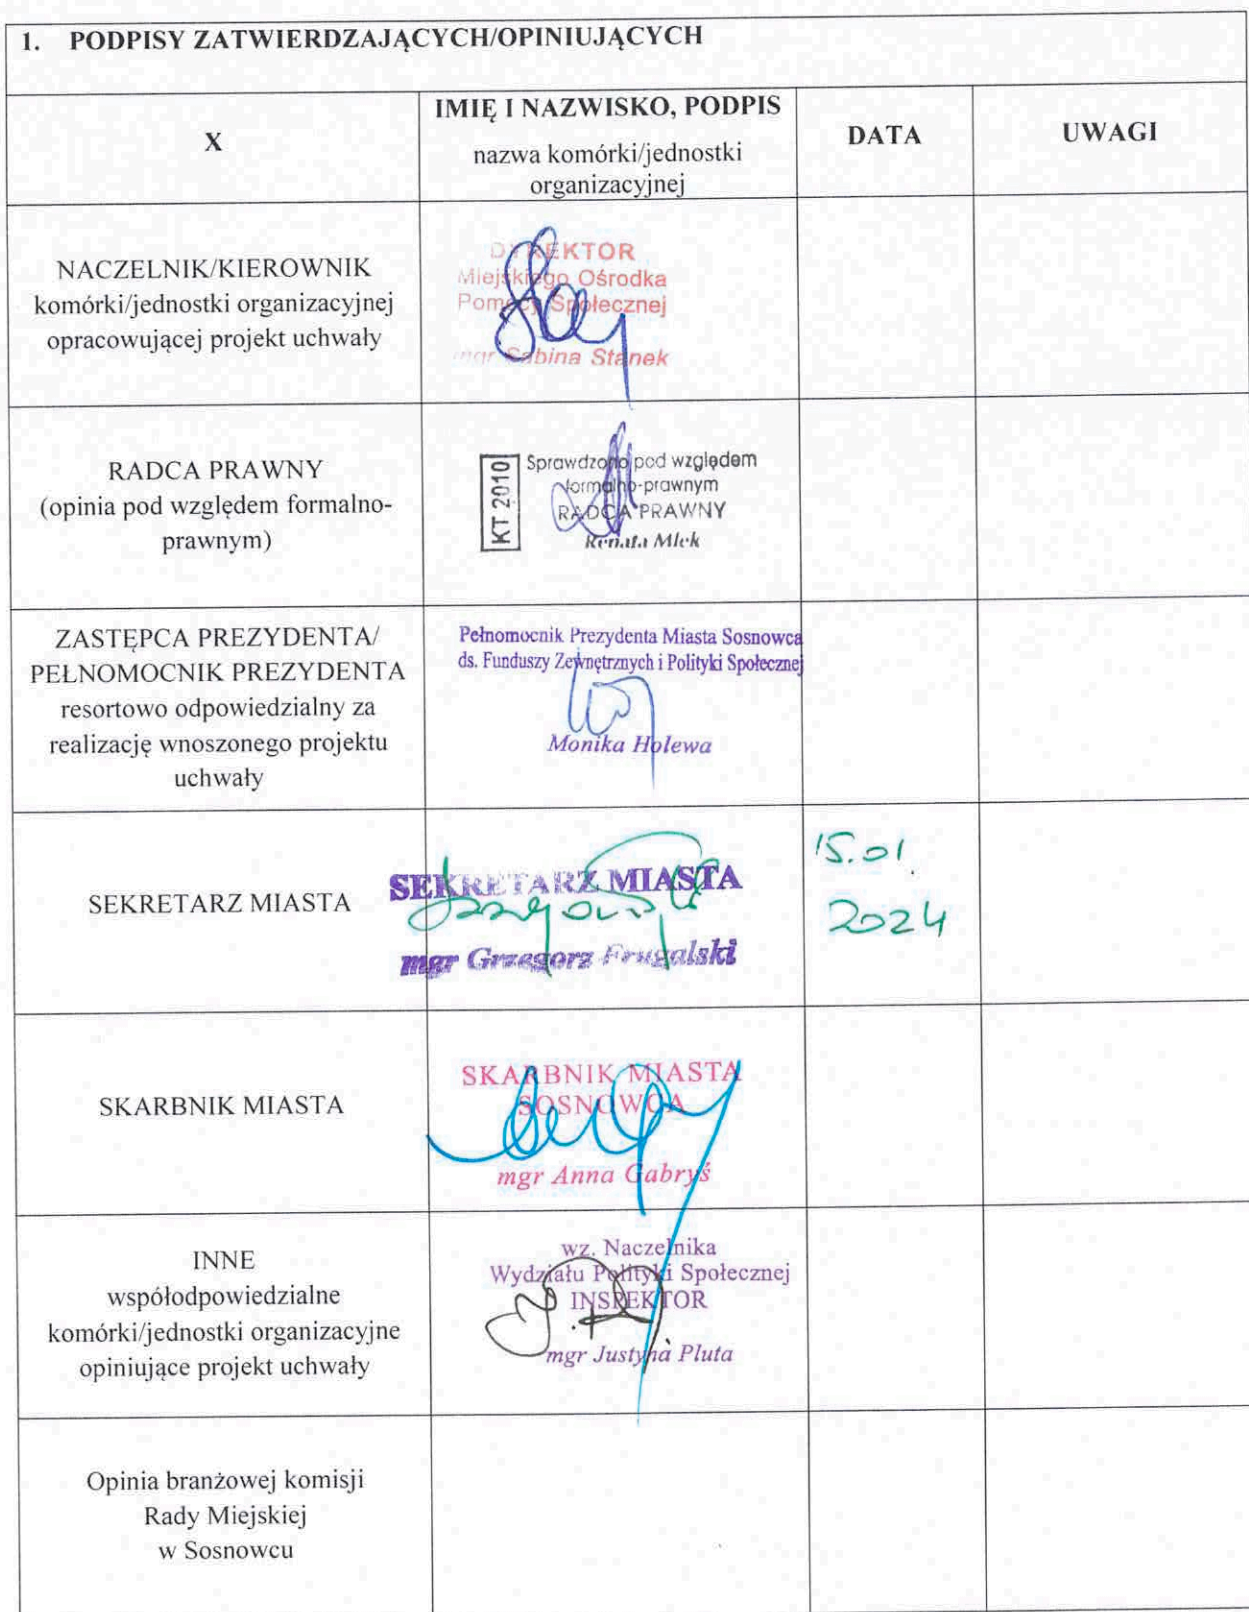 1. PODPISY ZATWIERDZAJĄCYCH/OPINIUJĄCYCH
X
IMIĘ I NAZWISKO, PODPIS
nazwa komórki/jednostki
organizacyjnej
DATA
UWAGI
NACZELNIK/KIEROWNIK
komórki/jednostki organizacyjnej
opracowującej projekt uchwały
DYREKTOR
Miejskiego Ośrodka
Pomocy Społecznej
mgr Sabina Stanek
RADCA PRAWNY
(opinia pod względem formalno-
prawnym)
KT 2010
Sprawdzono pod względem
formalno-prawnym
RADCA PRAWNY
Renata Mlek
ZASTĘPCA PREZYDENTA/
PEŁNOMOCNIK PREZYDENTA
resortowo odpowiedzialny za
realizację wnoszonego projektu
uchwały
Pełnomocnik Prezydenta Miasta Sosnowca
ds. Funduszy Zewnętrznych i Polityki Społecznej
Monika Holewa
SEKRETARZ MIASTA
SEKRETARZ MIASTA
mgr Grzegorz Frugalski
15.01.
2024
SKARBNIK MIASTA
SKARBNIK MIASTA
SOSNOWCA
mgr Anna Gabryś
INNE
współodpowiedzialne
komórki/jednostki organizacyjne
opiniujące projekt uchwały
wz. Naczelnika
Wydziału Polityki Społecznej
INSPEKTOR
mgr Justyna Pluta
Opinia branżowej komisji
Rady Miejskiej
w Sosnowcu